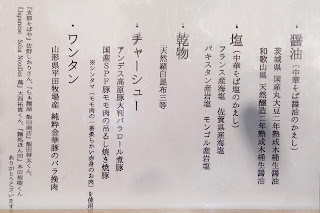 ・醤油(中華そば醤油のかえし)
茨城県 国産丸大豆二年熟成木桶生醤油
和歌山県 天然醸造二年熟成木桶生醤油
・塩(中華そば塩のかえし)
フランス産海塩 佐賀県産海塩
パキスタン産岩塩 モンゴル産岩塩
・乾物
(天然羅臼昆布三等
・チャーシュー
アンデス高原豚大判バラロール煮豚
国産SPF豚モモ肉の吊るし焼き焼豚
※シンタマ(モモ肉の一番柔らかい赤身のお肉)を使用
・ワンタン
山形県平田牧場産 純粋金華豚のバラ挽肉
『支那そばや』佐野しおりさん、『らぁ麺屋 飯田商店』飯田将太さん、
『Japanese Soba Noodles 蔦』大西祐貴くん、『麺処ほん田』本田裕樹くん
ありがとうございます